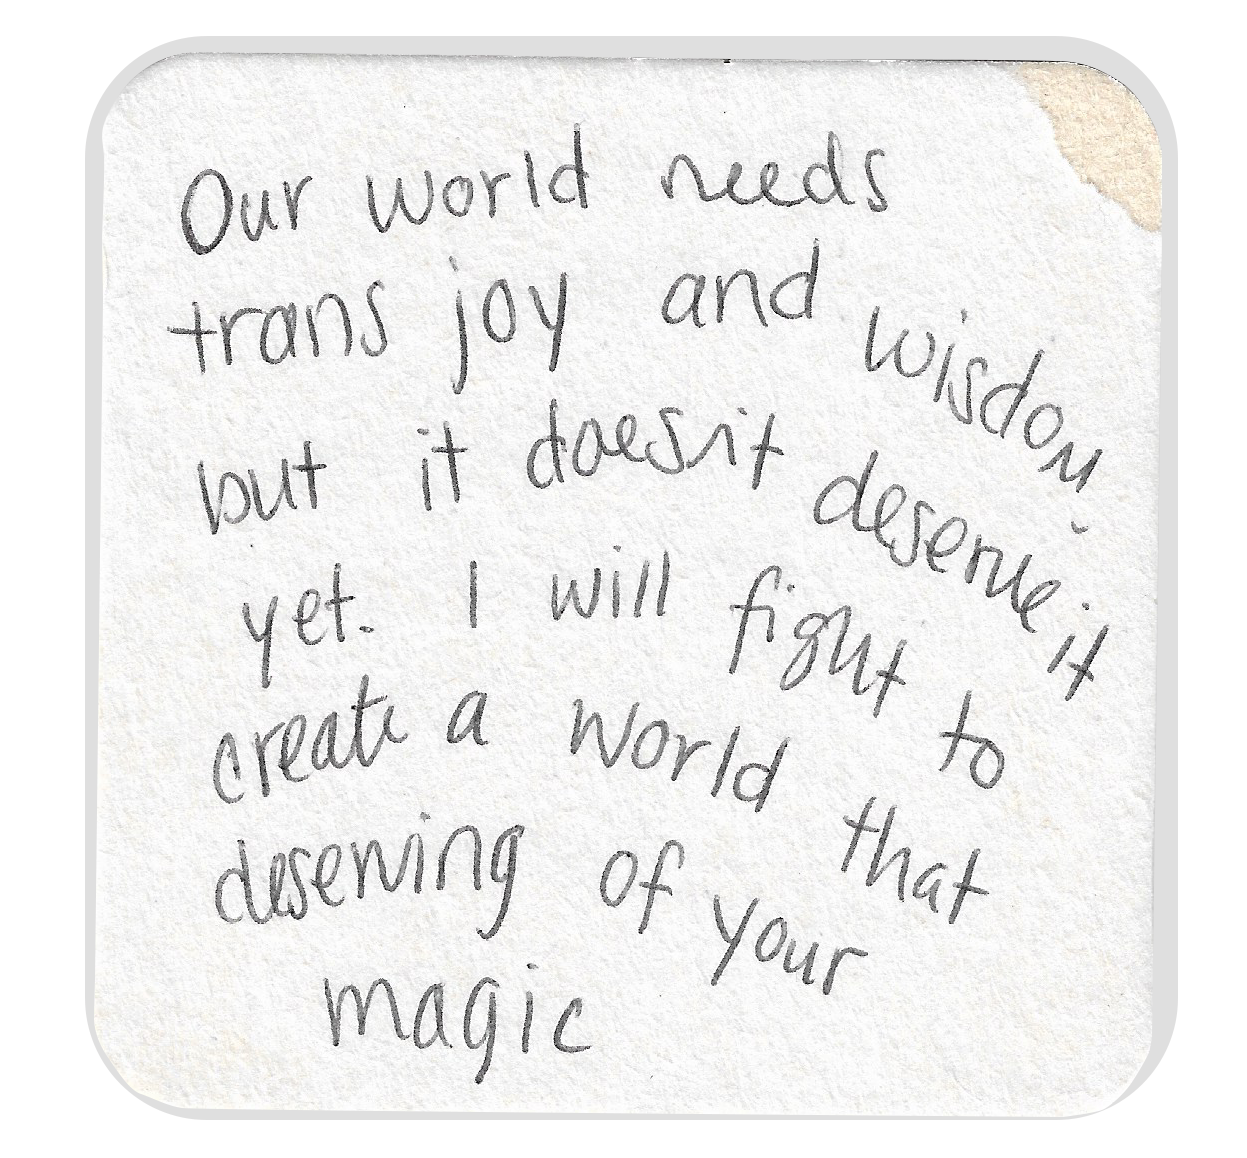 Our world needs
trans joy and wisdom,
but it doesn't deserve it
yet. I will fight to
create a world that
deserving of your
magic